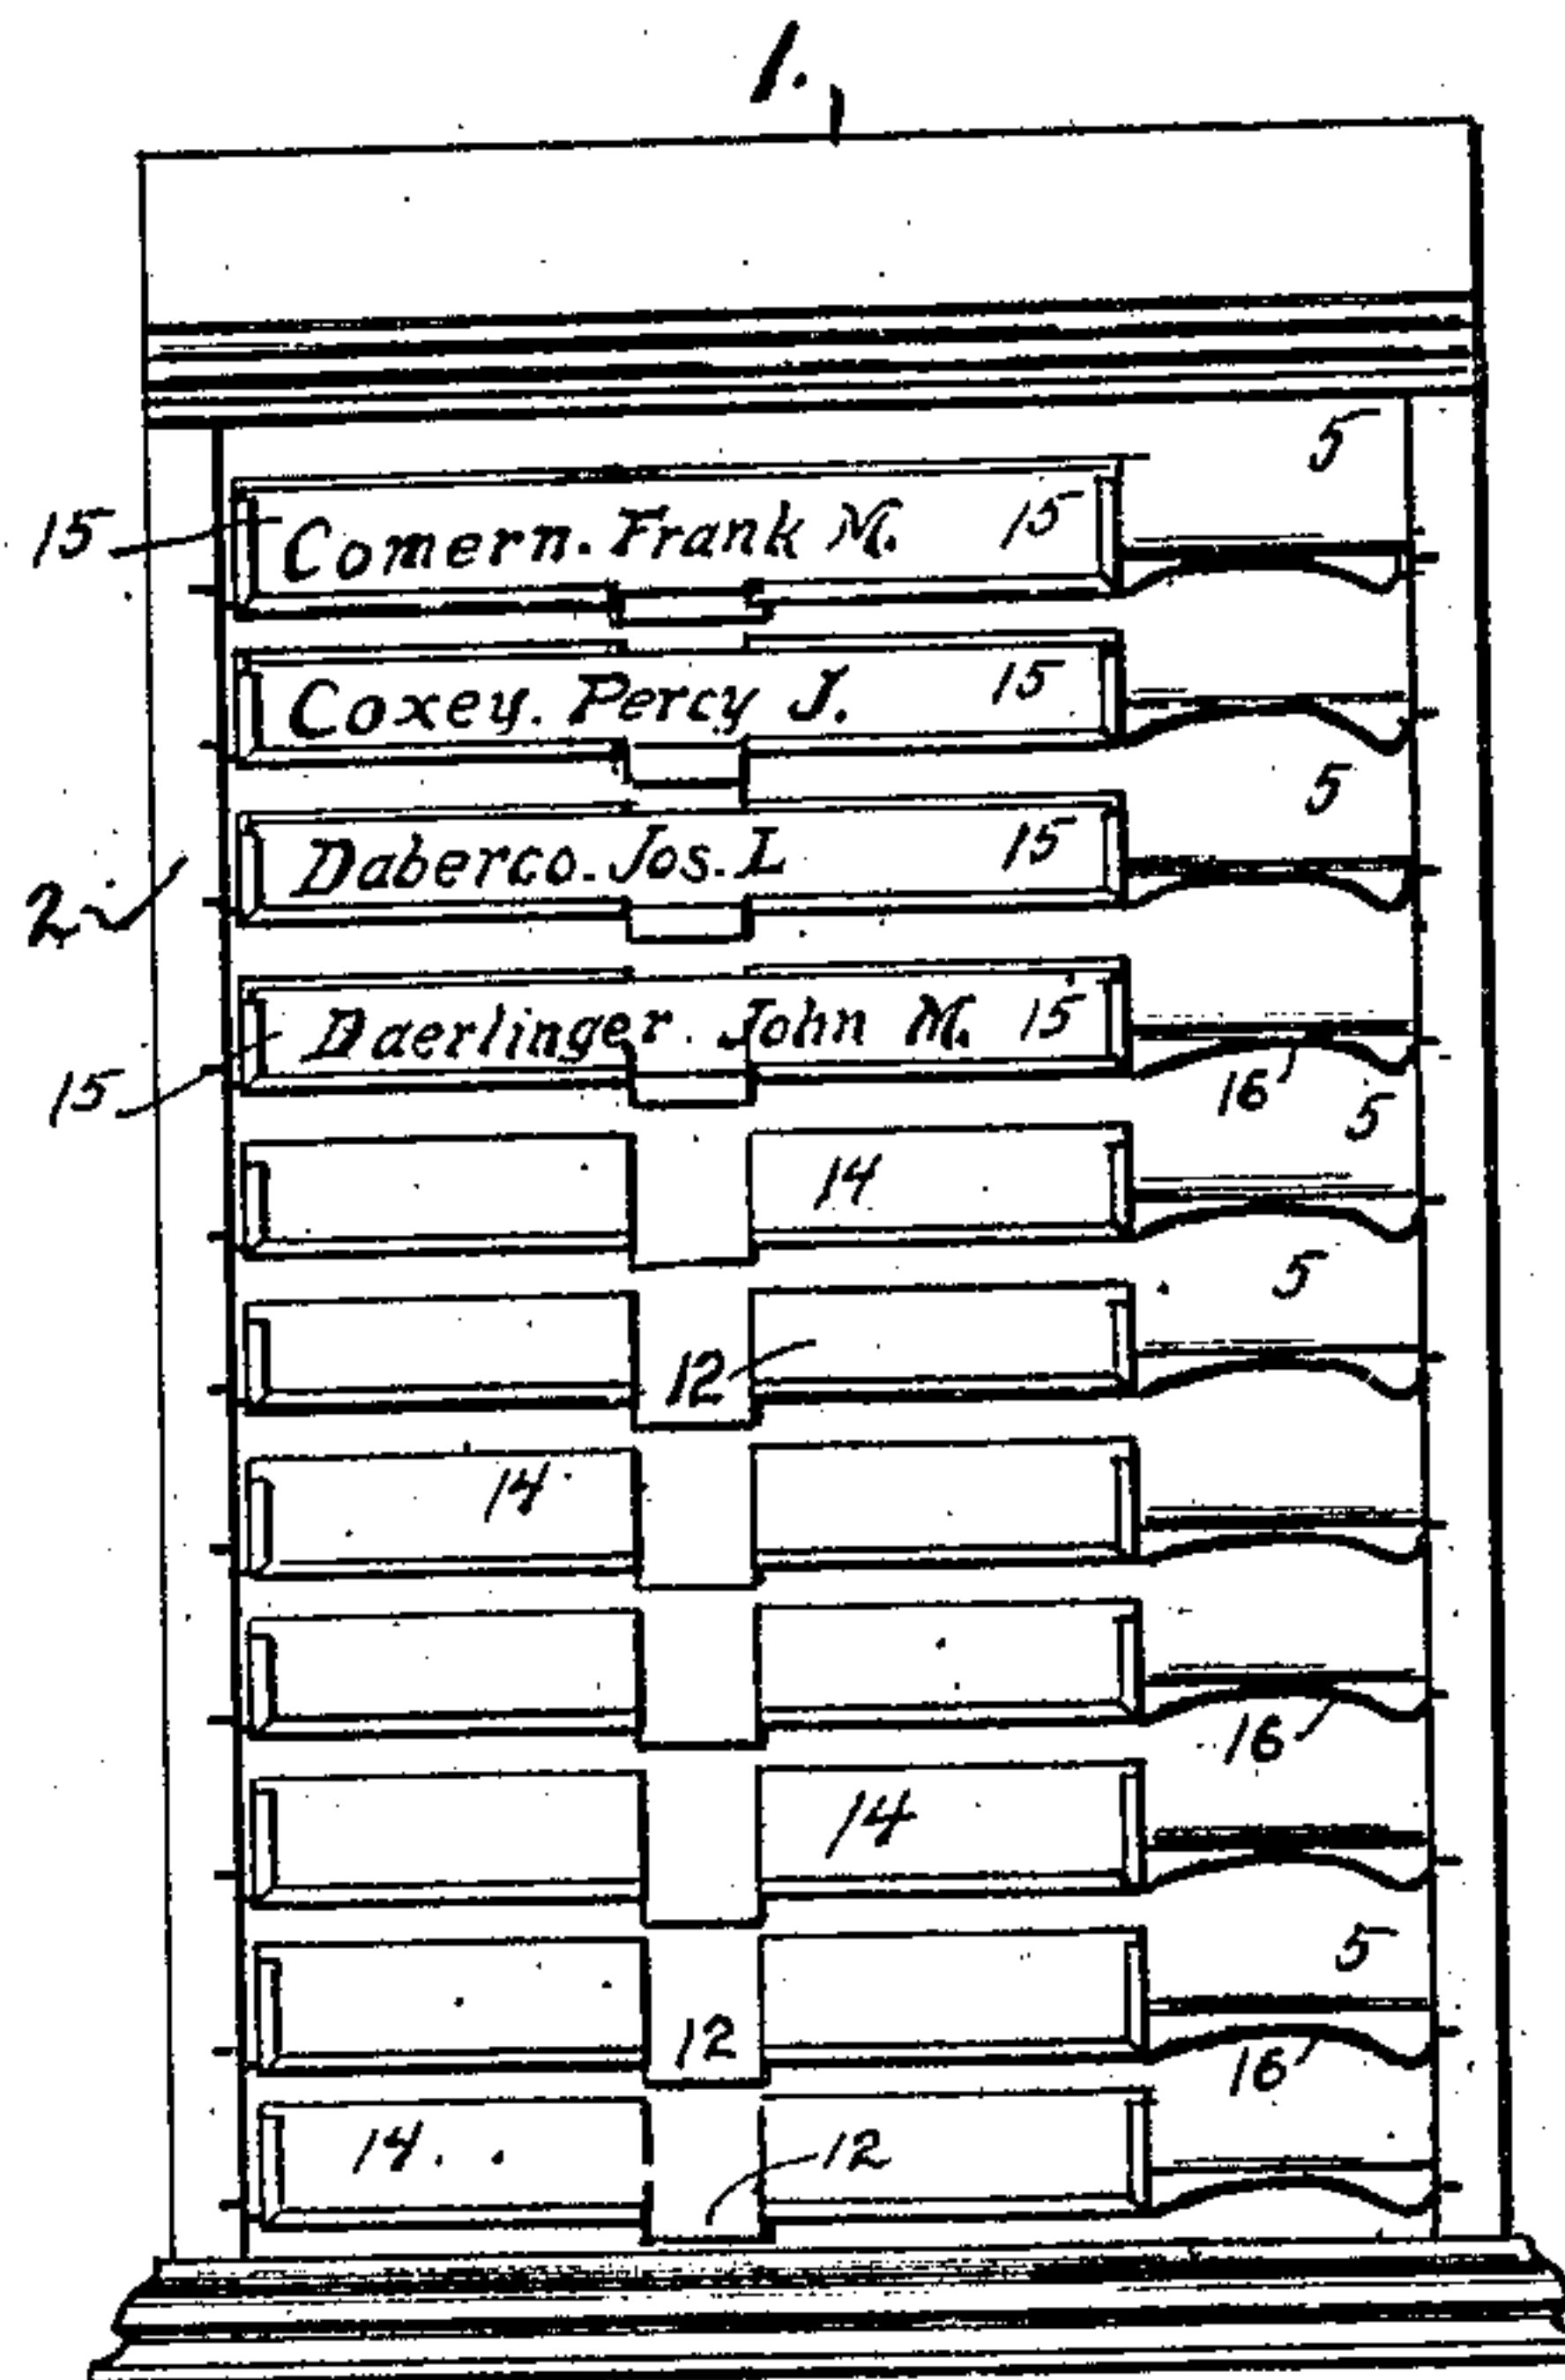 1.
5
15 Comern. Frank M. 15
Coxey. Percy J. 15
5
2 Daberco. Jos. L 15
15 Daerlinger. John M. 15
16
5
14
5
12
14
16
14
5
12
16
14. 12